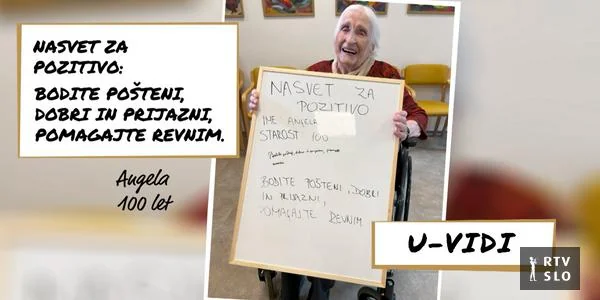 NASVET ZA
POZITIVO:
BODITE POŠTENI,
DOBRI IN PRIJAZNI,
POMAGAJTE REVNIM.
Angela
100 let
NASVET ZA
POZITIVO
IME ANGELA
STAROST 100
BODITE POŠTENI, DOBRI
IN PRIJAZNI,
POMAGAJTE REVNIM
U-VIDI
RTV
SLO